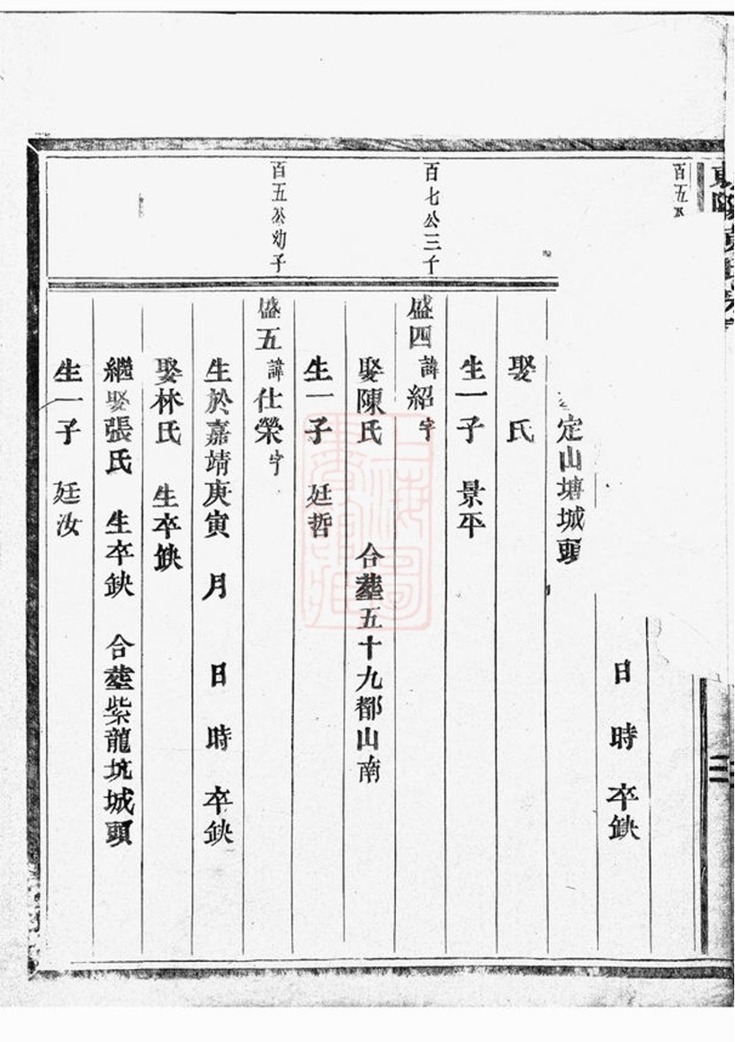 百五
日 時 卒缺
定山塘城頭
娶 氏
生一子 景平
百七公三子
盛四 諱 紹 字
娶陳氏 合塟五十九都山南
生一子 廷哲
百五公幼子
盛五 諱 仕榮 字
生於嘉靖庚寅 月 日 時 卒缺
娶林氏 生卒缺
繼娶張氏 生卒缺 合塟紫龍坑城頭
生一子 廷汝